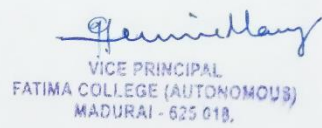 VICE PRINCIPAL
FATIMA COLLEGE (AUTONOMOUS)
MADURAI - 625 018.